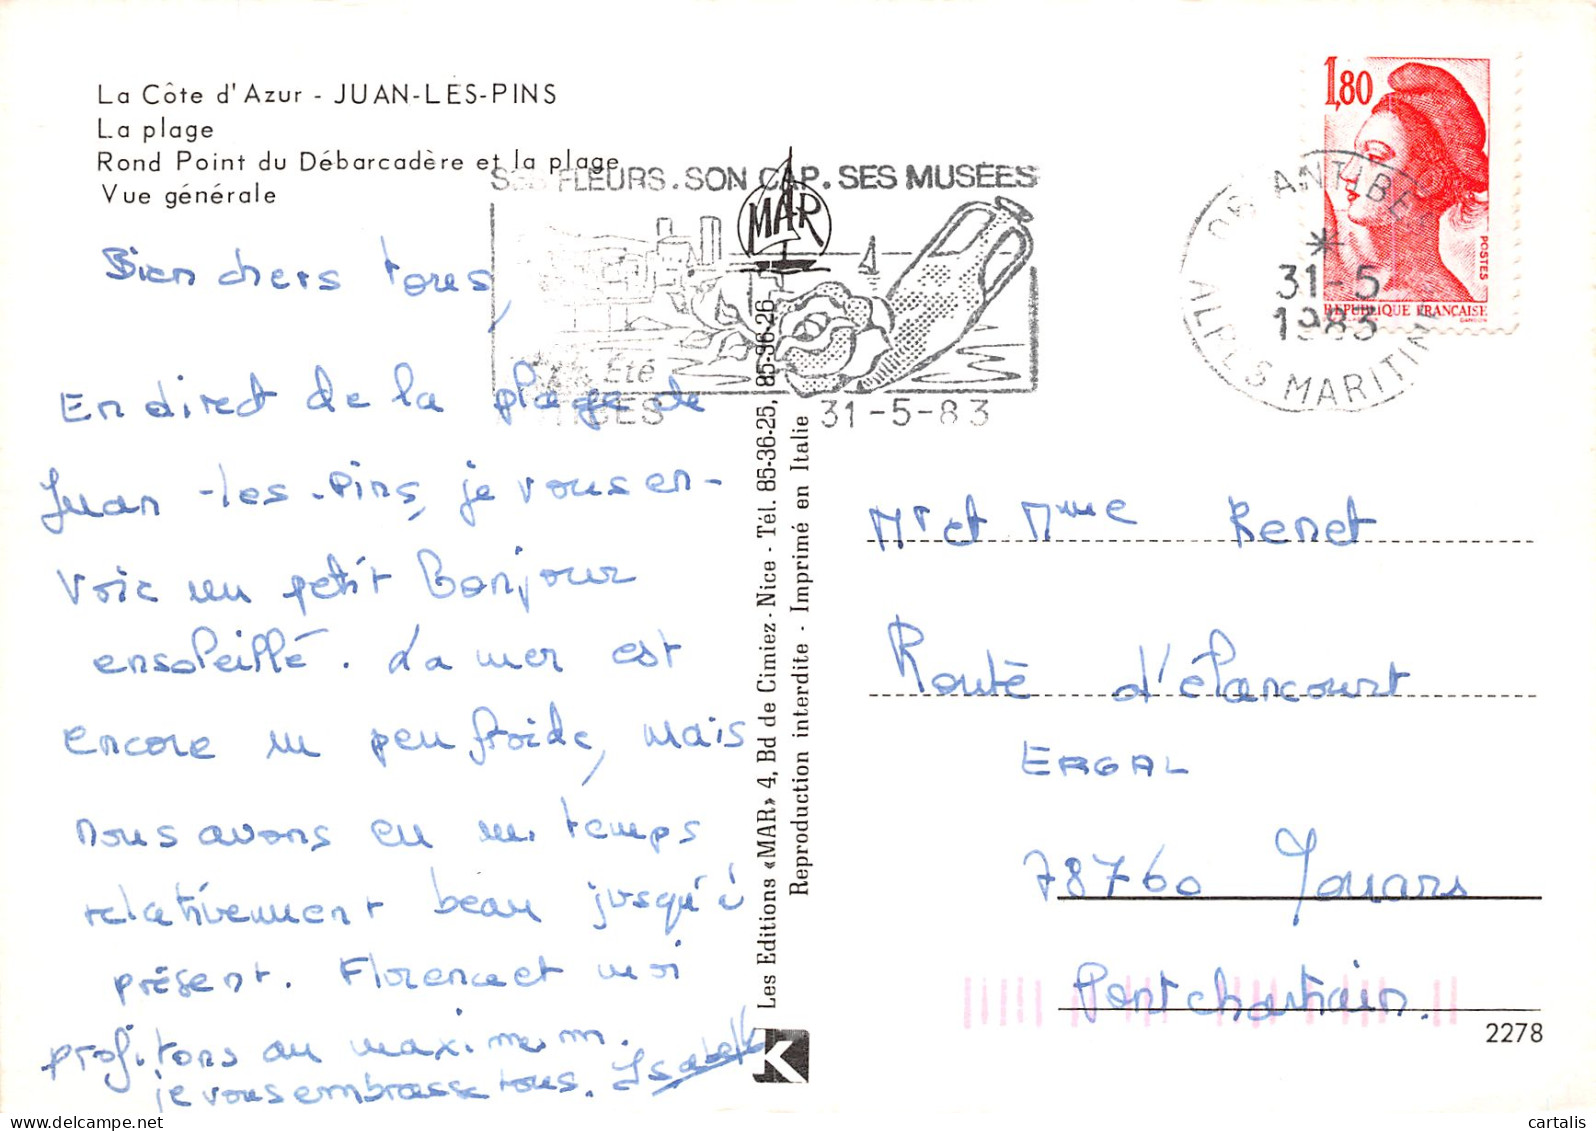 La Côte d'Azur - JUAN-LES-PINS
La plage
Rond Point du Débarcadère et la plage
Vue générale
SES FLEURS. SON CAP. SES MUSÉES
MAR
Été
31-5-83
1,80
POSTES
REPUBLIQUE FRANÇAISE
06 ANTIBES
31-5
1983
ALPES MARITIMES
Bien chers tous,
En direct de la plage de
Juan-les-Pins, je vous en-
voie un petit Bonjour
ensoleillé. La mer est
encore un peu froide, mais
nous avons eu un temps
relativement beau jusqu'à
présent. Florence et moi
profitons au maximum.
je vous embrasse tous. Isabelle
Les Editions «MAR» 4, Bd de Cimiez - Nice - Tél. 85-36-25, 85-36-26
Reproduction interdite - Imprimé en Italie
K
Mr et Mme Benet
Route d'élancourt
ERGAL
78760 Jouars
Pontchartrain.
2278
cartalis